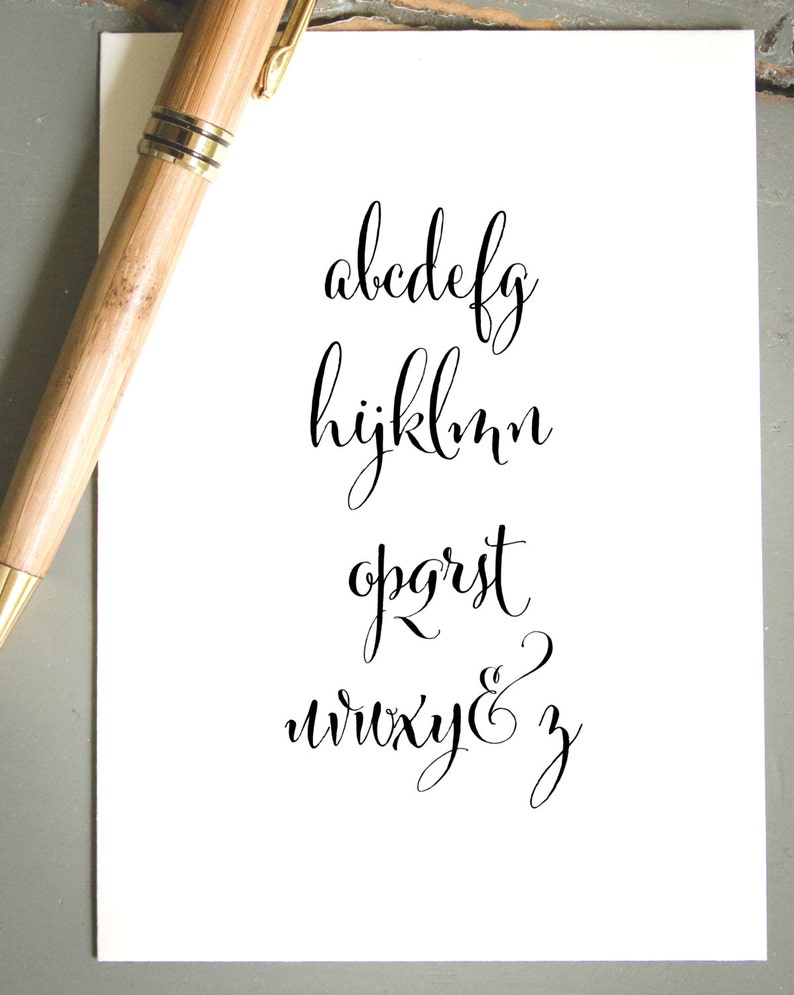 abcdefg
hijklmn
opqrst
uvwxy& z